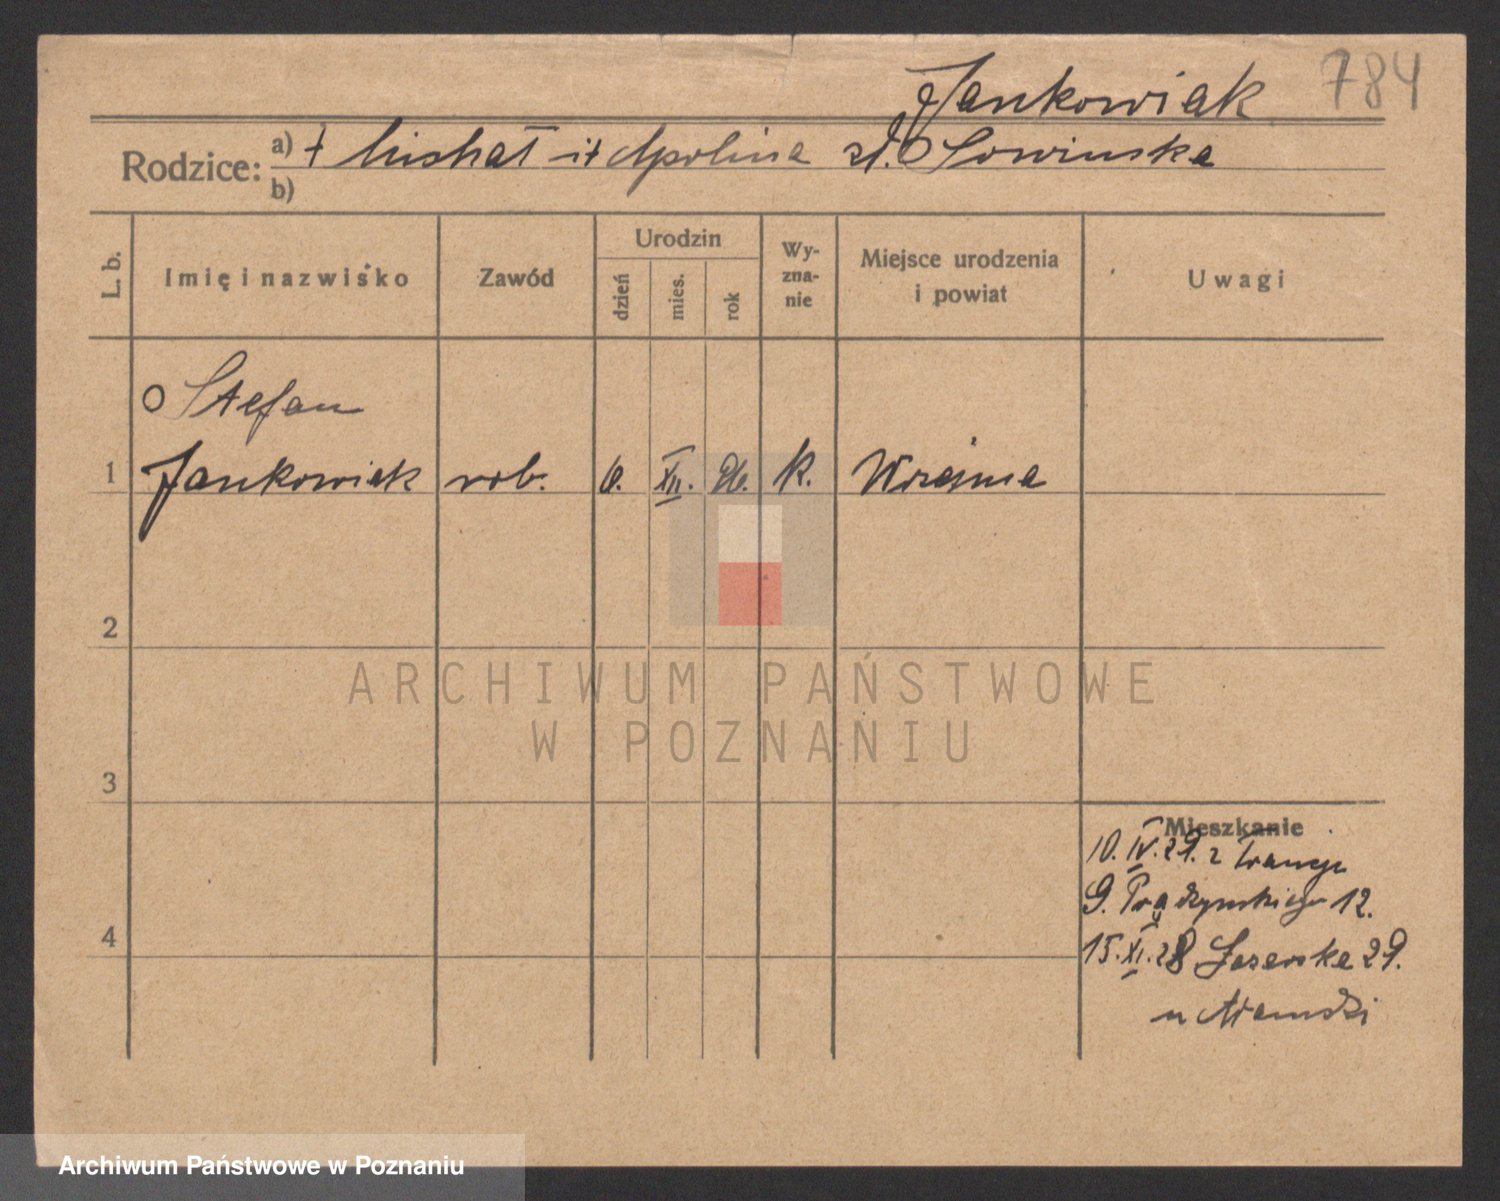 784
Jankowiak
Rodzice: a) + Michał i + Apolina zd. Sowinska
b)
L. b.
Imię i nazwisko
Zawód
Urodzin
dzień
mies.
rok
Wy-
zna-
nie
Miejsce urodzenia
i powiat
Uwagi
O Stefan
1 Jankowiak rob. 6. XII. 26. k. Września
2
3
4
Mieszkanie
10. IV. 29. z Francji
G. Prądzyńskiego 12.
15. XI. 28
29.
u
ARCHIWUM PAŃSTWOWE
W POZNANIU
Archiwum Państwowe w Poznaniu